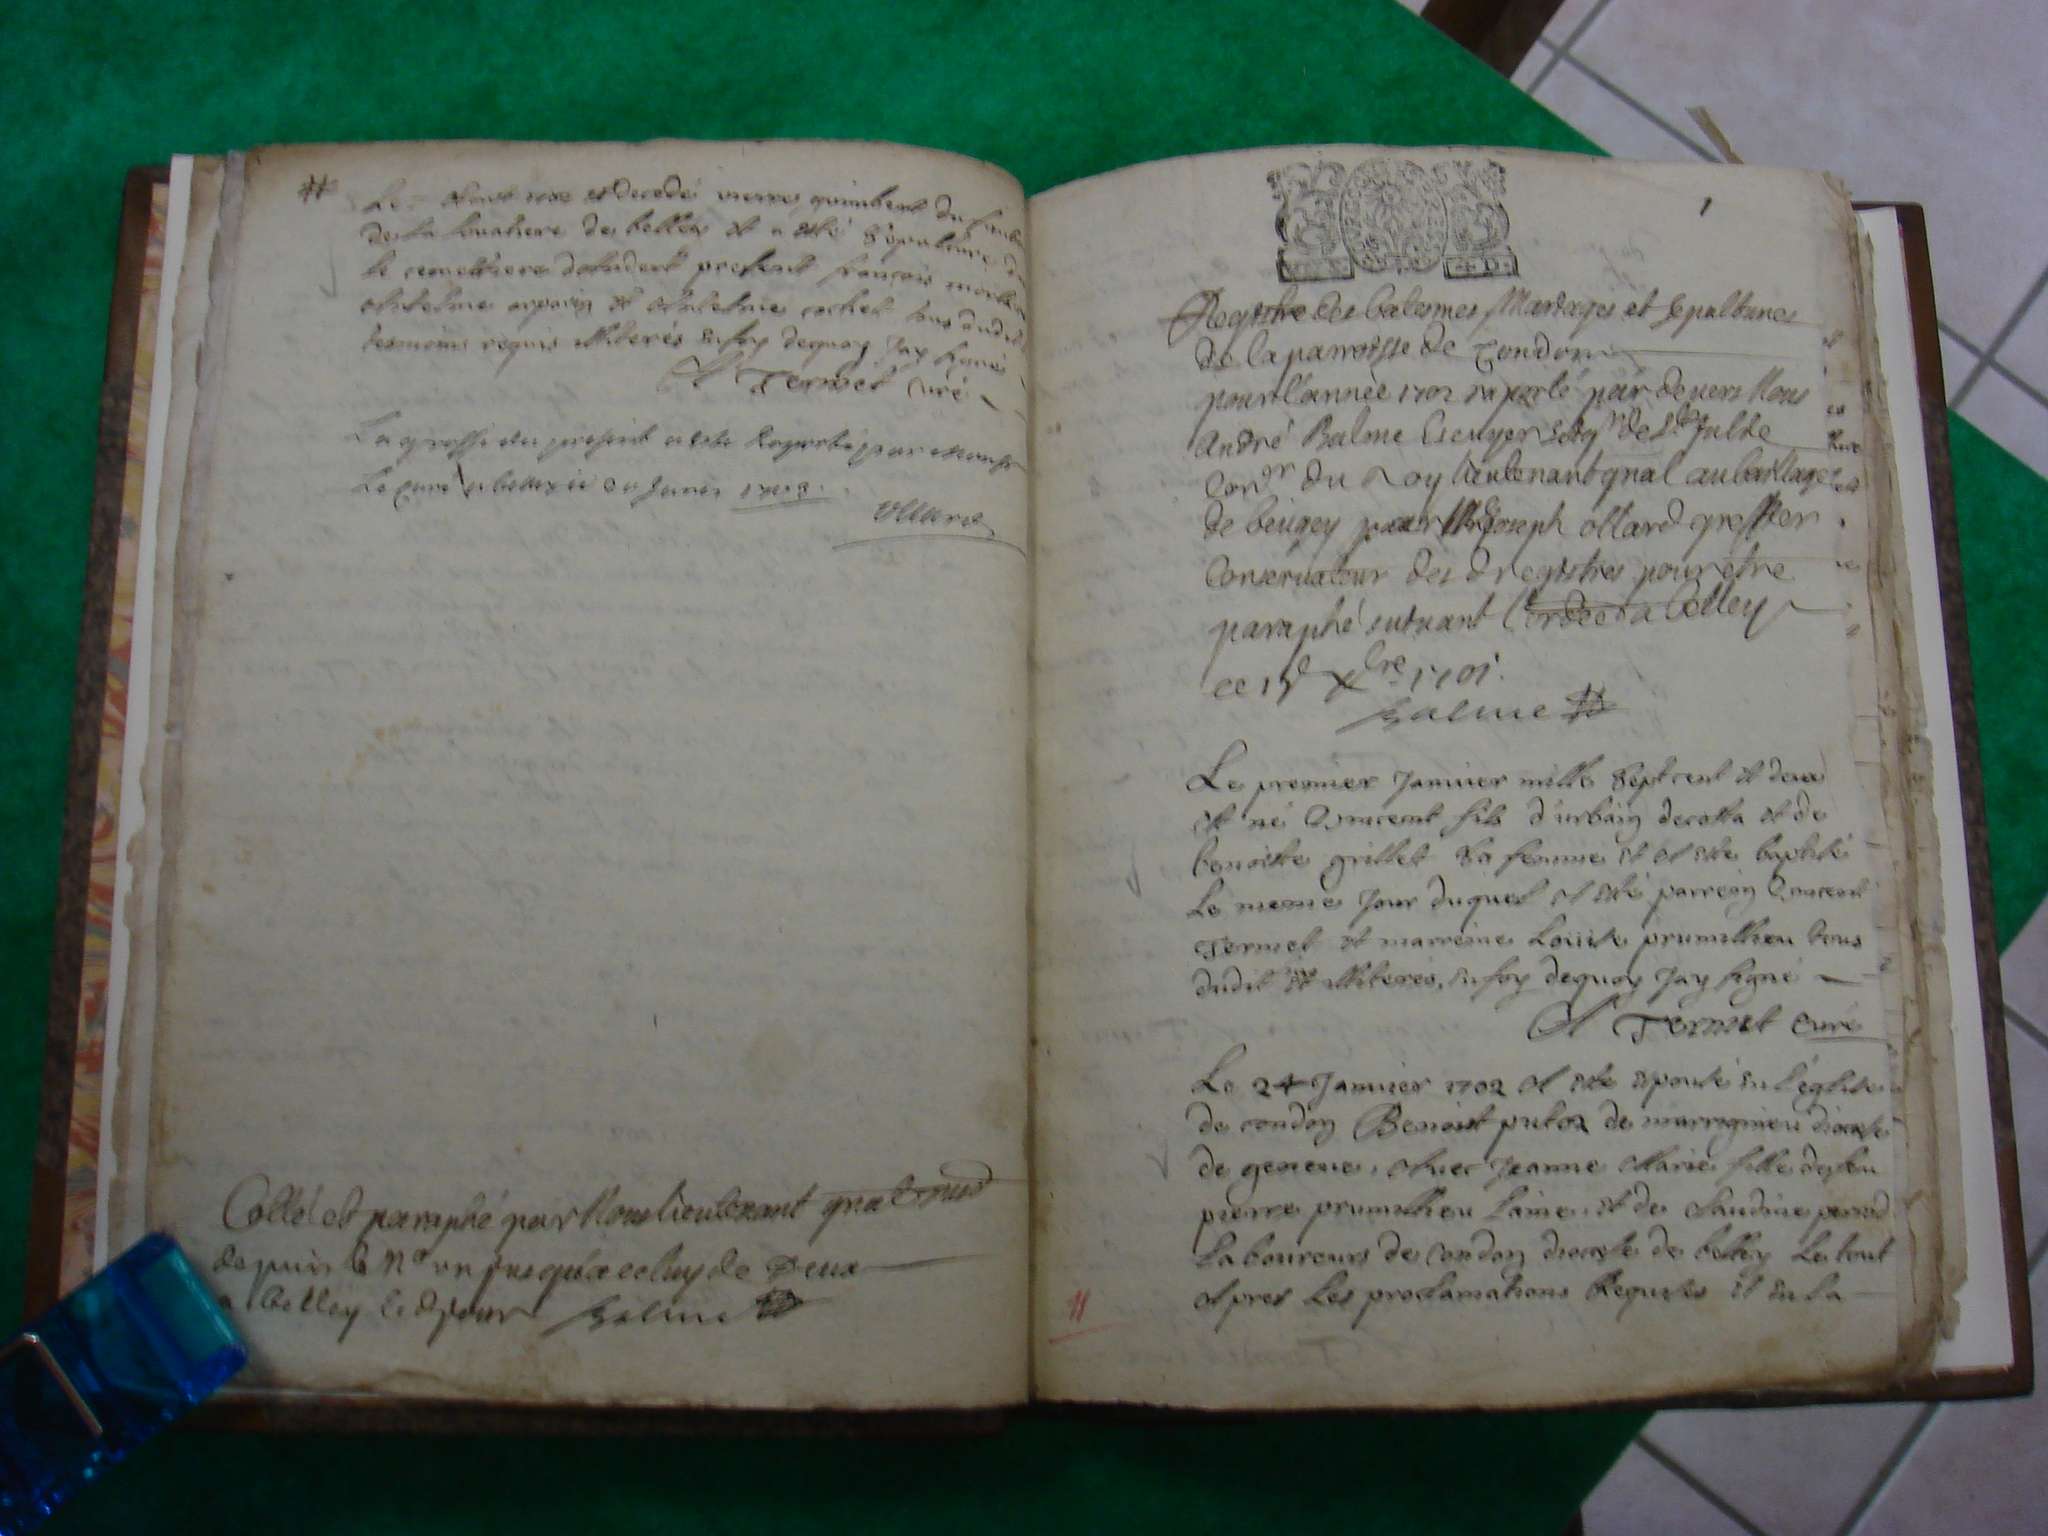 Le aout 1702 est decedé pierre quimbert du
de la de belley et a esté
le cemettiere dudit present françois
anthelme et anthelme cochet tous dudit
tesmoins requis illiterés en foy dequoy Jay signé
A Ternet curé
La grosse du present a esté Raportée par
Le curé a belley ce 20 Janer 1703
Ollard
Cotté et paraphé par Nous lieutenant gnal
depuis le No un jusqu'a celuy de Deux
a belley le d jour Balme
1
Registre des batesmes Mariages et sepultures
de la parroisse de Condon
pour l'année 1702 raporté par devers Nous
André Balme Escuyer Seigr de
Conser du Roy lieutenant gnal au bailliage
de beugey par Me Joseph ollard greffier
Conservateur des d registres pour etre
paraphé suivant a Belley
ce Xbre 1701
Balme
Le premier Janvier mille sept cent et deux
est né Vincent fils d'urbain decotta et de
benoiste grillet sa femme et at esté baptisé
le meme Jour duquel at esté parrein Vincent
Ternet et marreine Louise prumillieu tous
dudit illiterés, en foy dequoy Jay signé
A Ternet curé
Le 24 Janvier 1702 at esté epousé en l'église
de condon Benoist putoz de marrignieu diocese
de geneve, avec Jeanne Marie fille de feu
pierre prumillieu laine, et de Claudine
laboureurs de condon diocese de belley Le tout
apres Les proclamations Requises et en la
11